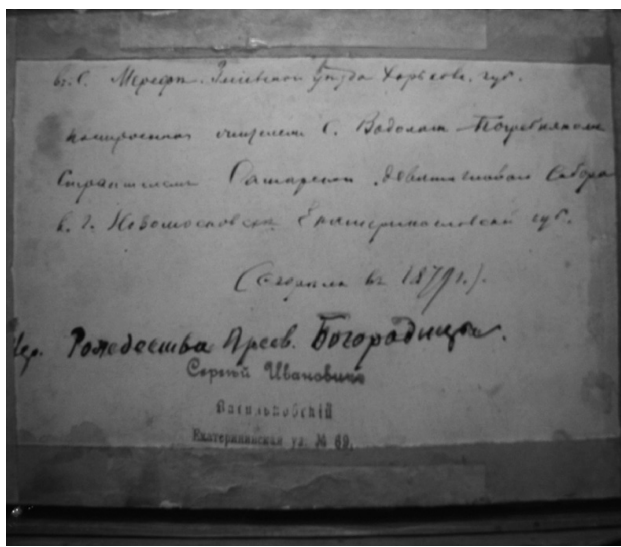 въ С. Мерефа Зміевскаго Уѣзда Харьков. губ.
построенная жителем С. Водолаги Погребнякомъ
Строителемъ Самарскаго девятиглаваго Собора
в г. Новомосковскѣ Екатеринославской губ.
(Сгорѣла въ 1879 г.).
Цер. Рождества Пресв. Богородицы.
Сергѣй Ивановичъ
Васильковскій
Екатерининская ул. № 69.